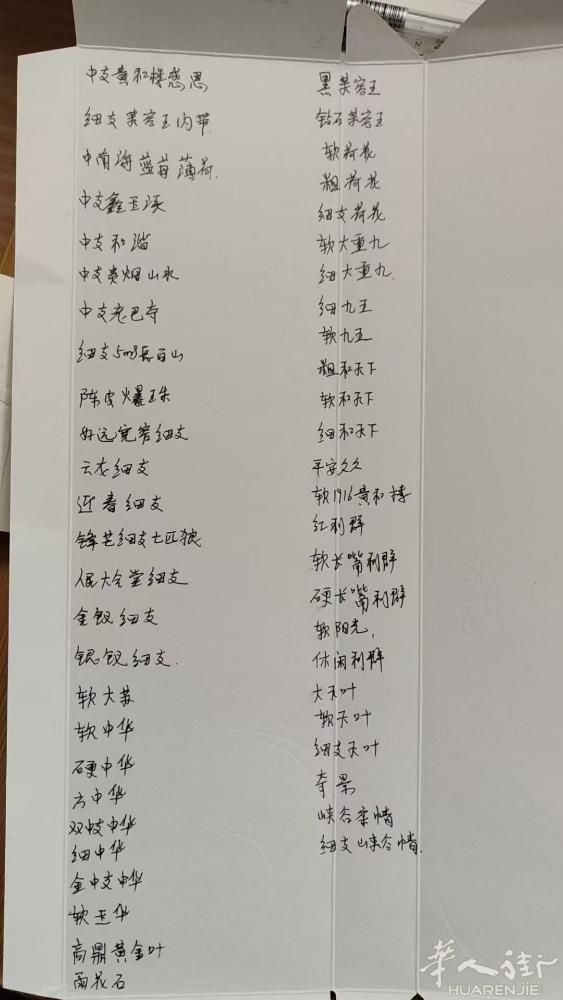 中支黄和楼感恩
细支芙容王内带
中南海蓝莓薄荷.
中支鑫玉溪
中支和谐
中支贵烟山水
中支老巴夺
细支5mg长白山
陈皮爆珠
好运宽窄细支
云龙细支
迎春细支
锋芒细支七匹狼
人民大会堂细支
金钗细支
银钗细支.
软大苏
软中华
硬中华
方中华
双中支中华
细中华
金中支中华
软玉华
高鼎黄金叶
雨花石
黑芙容王
钻石芙容王
软荷花
粗荷花
细支荷花
软大重九
细大重九.
细九五
软九五
粗和天下
软和天下
细和天下
平安久久
软1916黄和楼
红利群
软长嘴利群
硬长嘴利群
软阳光,
休闲利群
大天叶
软天叶
细支天叶
奇景
峡谷柔情
细支峡谷情.
華人街
HUARENJIE